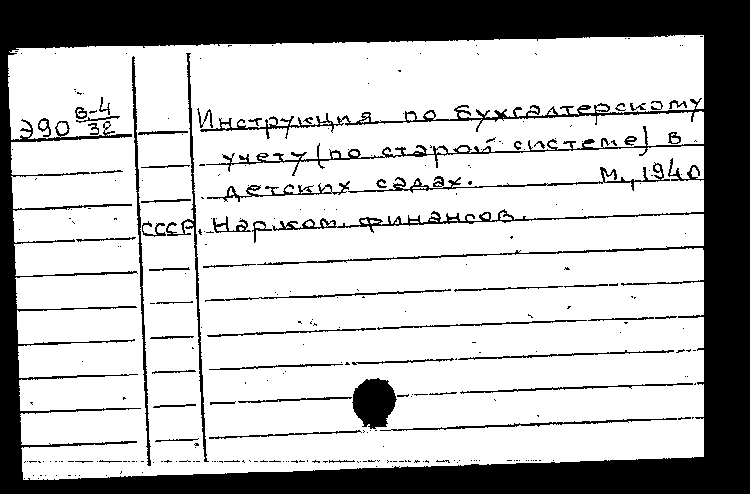 Э90 В-4/32 Инструкция по бухгалтерскому
учету (по старой системе) в
детских садах. М., 1940
СССР. Нар.ком. финансов.